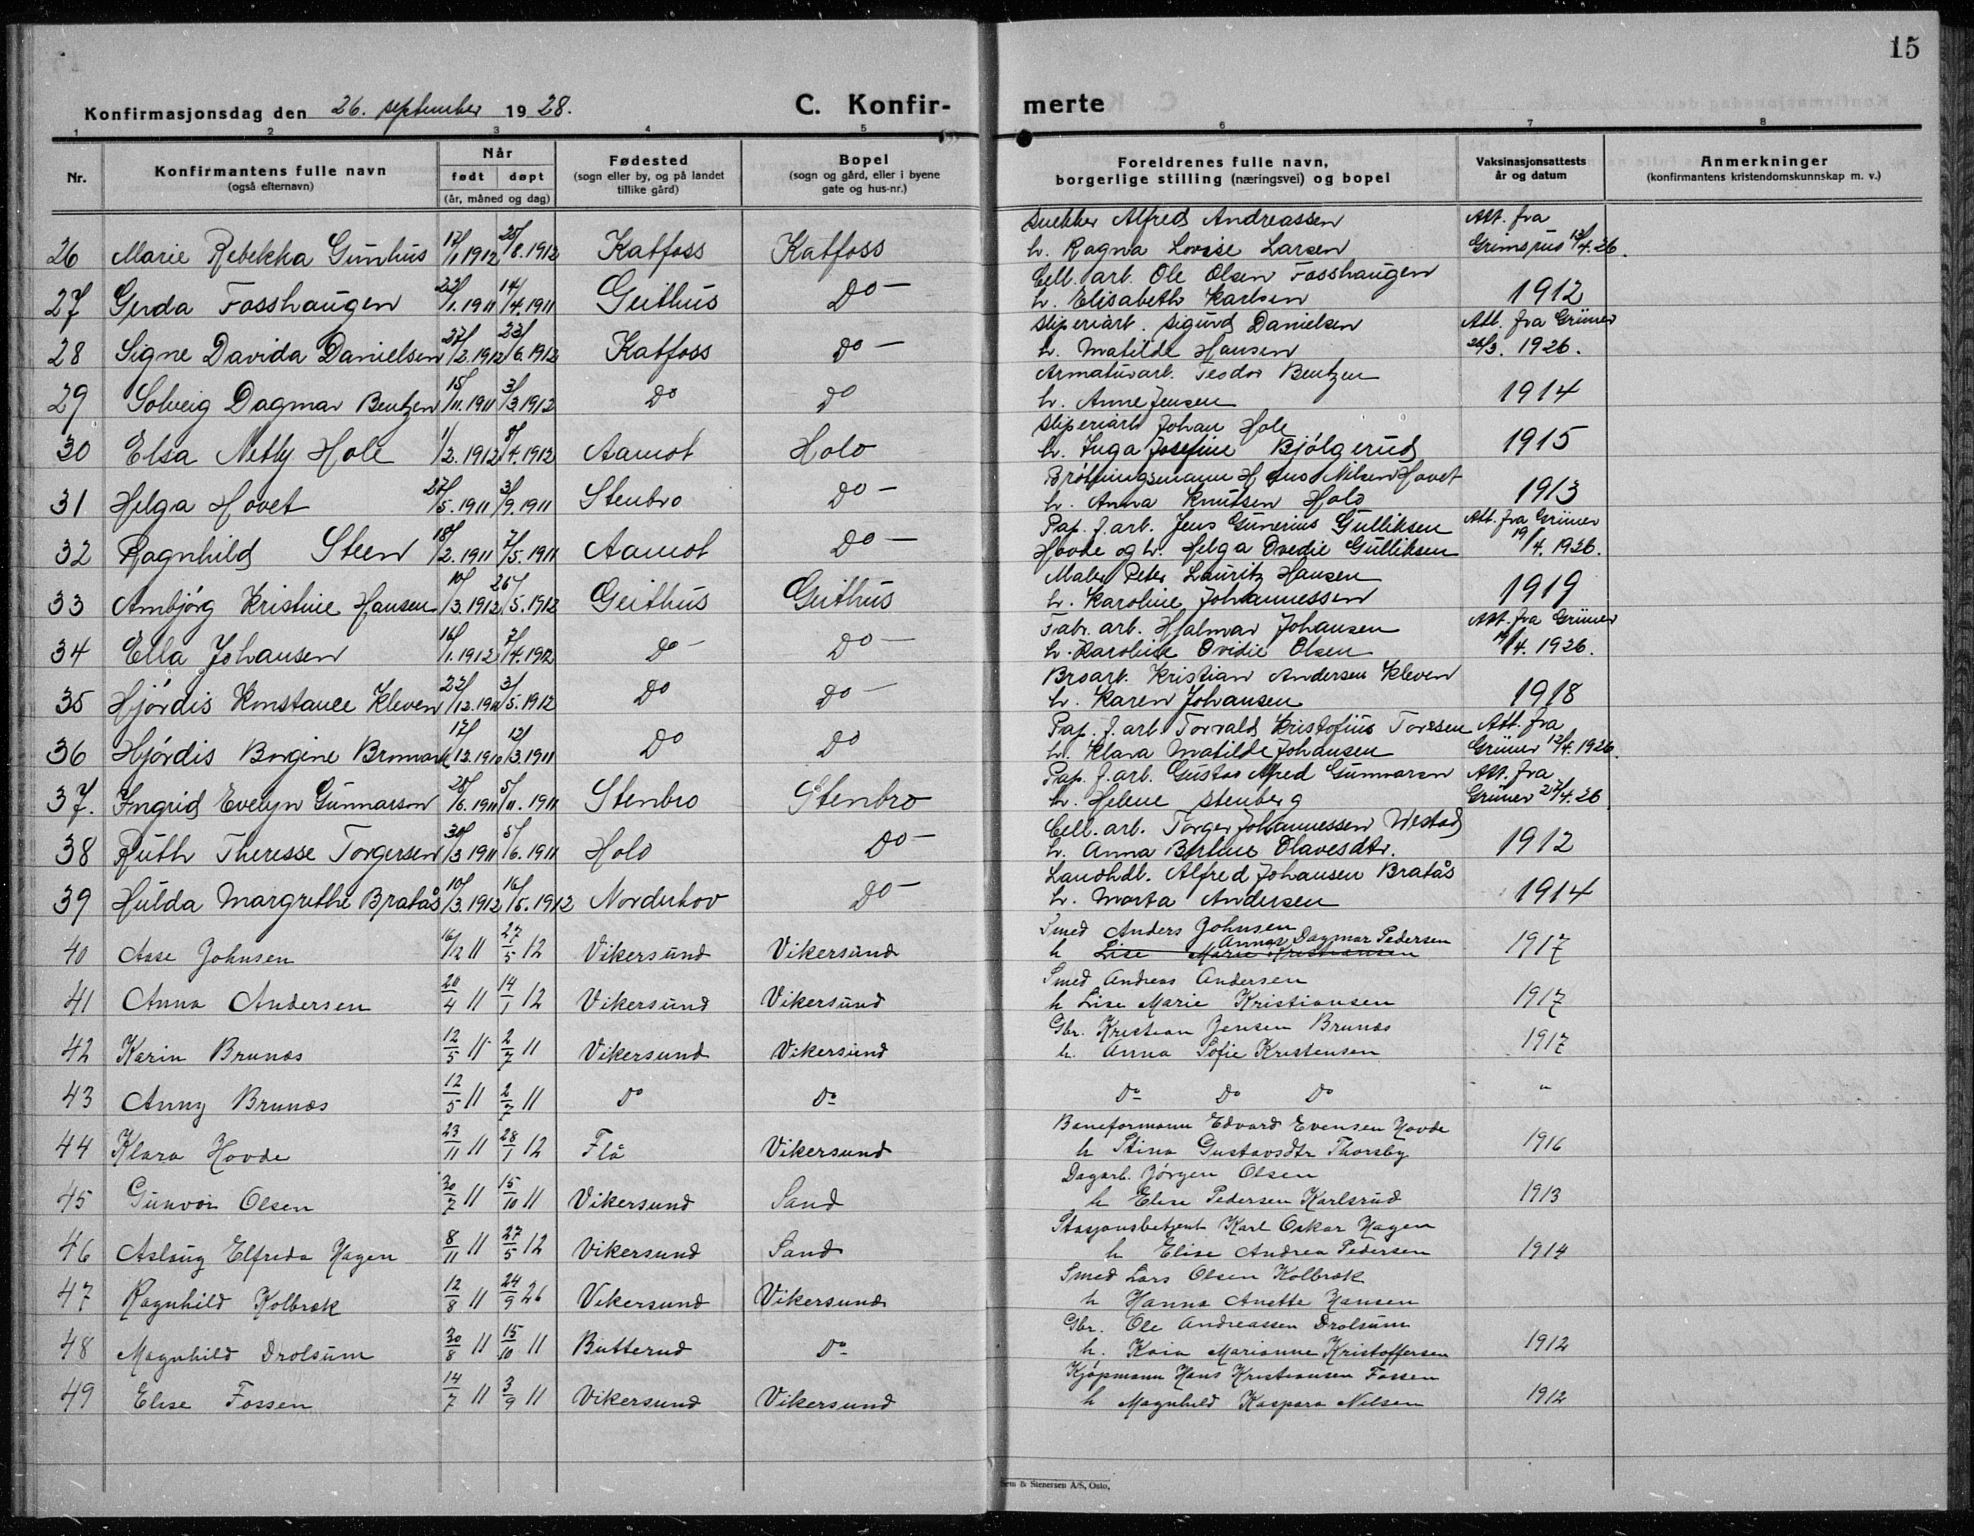 15
Konfirmasjonsdag den 26. september 1928. C. Konfir- merte
1 2 3 4 5 6 7 8
Nr. Konfirmantens fulle navn (også efternavn) Når født døpt (år, måned og dag) Fødested (sogn eller by, og på landet tillike gård) Bopel (sogn og gård, eller i byene gate og hus-nr.) Foreldrenes fulle navn, borgerlige stilling (næringsvei) og bopel Vaksinasjonsattests år og datum Anmerkninger (konfirmantens kristendomskunnskap m. v.)
Snekker Alfred Andreassen Att. fra
26 Marie Rebekka Gunhus 17/1 1912 25/8. 1912 Katfoss Katfoss h. Ragna Lovise Larsen 13/4. 26.
Cell. arb. Ole Olsen Fosshaugen
27 Gerda Fosshaugen 22/1. 1911 14/4. 1911 Geithus Do — h. Elisabeth Karlsen 1912
Sliperiarb. Sigurd Danielsen Att. fra Grüner
28 Signe Davida Danielsen 27/2. 1912 23/6. 1912 Katfoss Do — h. Matilde Hansen 26/3. 1926.
Armaturarb. Teodor Bentzen
29 Solveig Dagmar Bentzen 15/11. 1911 3/3. 1912 Do Do h. Anne Jensen 1914
Sliperiarb Johan Hole
30 Elsa Netly Hole 1/2. 1912 8/4. 1912 Aamot Holo h. Inga Josefine Bjølgerud 1915
Brøtningsmann Hans Nilsen Hovet
31 Helga Hovet 27/5. 1911 3/9. 1911 Stenbro Do — h. Anna Knutsen Holo 1913
Pap. f. arb. Jens Gunerius Gulliksen Att. fra Grüner
32 Ragnhild Steen 18/2. 1911 7/5. 1911 Aamot Do — Hovde og h. Helga Ovedie Gulliksen 19/4. 1926.
Maler Peter Lauritz Hansen
33 Ambjørg Kristine Hansen 10/3. 1912 26/5. 1912 Geithus Geithus h. Karoline Johannessen 1919
Fabr. arb. Hjalmar Johansen Att. fra Grüner
34 Ella Johansen 16/1. 1912 7/4. 1912 Do — Do — h. Karoline Ovidie Olsen 19/4. 1926.
Broarb. Kristian Andersen Kleven
35 Hjørdis Konstance Kleven 23/12. 1911 3/5. 1912 Do Do — h. Karen Johansen 1918
Pap. f. arb Torvald Kristofius Toresen Att. fra
36 Hjørdis Borgine Bromark 17/12. 1910 12/3. 1911 Do Do h. Klara Matilde Johansen Grüner 12/4. 1926
Pap. f. arb. Gustav Alfred Gunnarson Att. fra
37. Ingrid Evelyn Gunnarson 25/6. 1911 5/11. 1911 Stenbro Stenbro h. Helene Stenberg Grüner 27/4. 26
Cell. arb. Torger Johannessen Westad
38 Ruth Theresse Torgersen 30/3 1911 5/6. 1911 Holo Do — h. Anna Birtine Olavesdtr. 1912
Landhdl. Alfred Johansen Bratås
39 Hulda Margrethe Bratås 10/3. 1912 16/5. 1912 Norderhov Do — h. Marta Andersen 1914
Smed Anders Johnsen
Annas Dagmar Pedersen
40 Aase Johnsen 16/12 11 27/5 12 Vikersund Vikersund h Lise Marie Kristiansen 1917
Smed Andreas Andersen
41 Anna Andersen 20/4 11 14/1 12 Vikersund Vikersund h Lise Marie Kristiansen 1917
Gbr. Kristian Jensen Brunæs
42 Karin Brunæs 12/5 11 2/7 11 Vikersund Vikersund h. Anna Sofie Kristensen 1917
43 Anny Brunæs 12/5 11 2/7 11 Do Do Do Do Do "
Baneformann Edvard Evensen Hovde
44 Klara Hovde 23/11 11 28/1 12 Flå Vikersund h Stina Gustavsdtr Thorsby 1916
Dagarb. Jørgen Olsen
45 Gunvor Olsen 30/7 11 15/10 11 Vikersund Sand h Elise Pedersen Karlsrud 1913
Stasjonsbetjent Karl Oskar Hagen
46 Aslaug Elfreda Hagen 8/11 11 27/5 12 Vikersund Sand h Elise Andrea Pedersen 1914
Smed Lars Olsen Kolbræk
47 Ragnhild Kolbræk 12/8 11 24/9 26 Vikersund Vikersund h Hanna Anette Hansen
Gbr. Ole Andreassen Drolsum
48 Magnhild Drolsum 30/8 11 15/10 11 Butterud Do h. Kaia Marianne Kristoffersen 1912
Kjøpmann Hans Kristiansen Fossen
49 Elise Fossen 14/7 11 3/9 11 Vikersund Vikersund h Magnhild Kaspara Nilsen 1912
Sem & Stenersen A/S, Oslo,